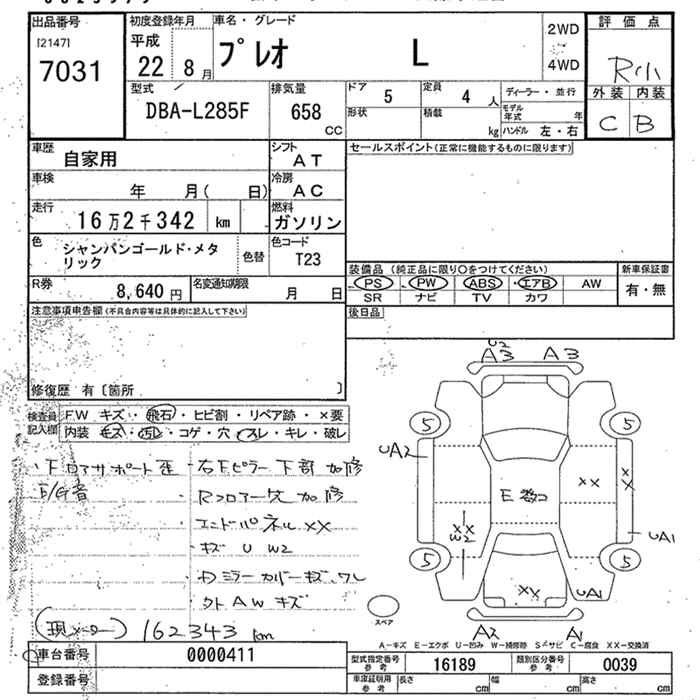 出品番号 初度登録年月 車名・グレード 評価点
[2147]
7031
平成 22 8月
プレオ L
2WD
4WD
R小
外装 内装
C B
型式 DBA-L285F
排気量 658 CC
ドア 5
定員 4 人
形状
積載 kg
ディーラー・並行
モデル年式 年
ハンドル 左・右
車歴 自家用
シフト AT
セールスポイント(正常に機能するものに限ります)
車検 年 月( 日)
冷房 AC
走行 16万2千342 km
燃料 ガソリン
色 シャンパンゴールド・メタリック
色替
色コード T23
装備品 (純正品に限り○をつけてください)
新車保証書
PS PW ABS エアB AW
SR ナビ TV カワ
有・無
R券 8,640 円
名変通知期限 月 日
後日品
注意事項申告欄 (不具合内容等は具体的に記入して下さい)
修復歴 有〔箇所 〕
検査員記入欄
FW キズ・飛石・ヒビ割・リペア跡・×要
内装 キズ・汚レ・コゲ・穴・スレ・キレ・破レ
・F ロアサポート歪
E/G音
・右Fピラー下部加修
Rフロアー穴 加修
エンドパネル XX
キズ U W2
ミラーカバーキズ、ワレ
AW キズ
(現メーター) 162343 km
U2
A3 A3
5 5
UA2
E 数コ
XX XX
XX
W2
UA1
5 5
XX
UA1
スペア
A2 A1
A-キズ E-エクボ U-凹み W-補修跡 S-サビ C-腐食 XX-交換済
車台番号 0000411
型式指定番号 参考 16189
類別区分番号 参考 0039
登録番号
車庫証明用 参考 長さ cm 幅 cm 高さ cm